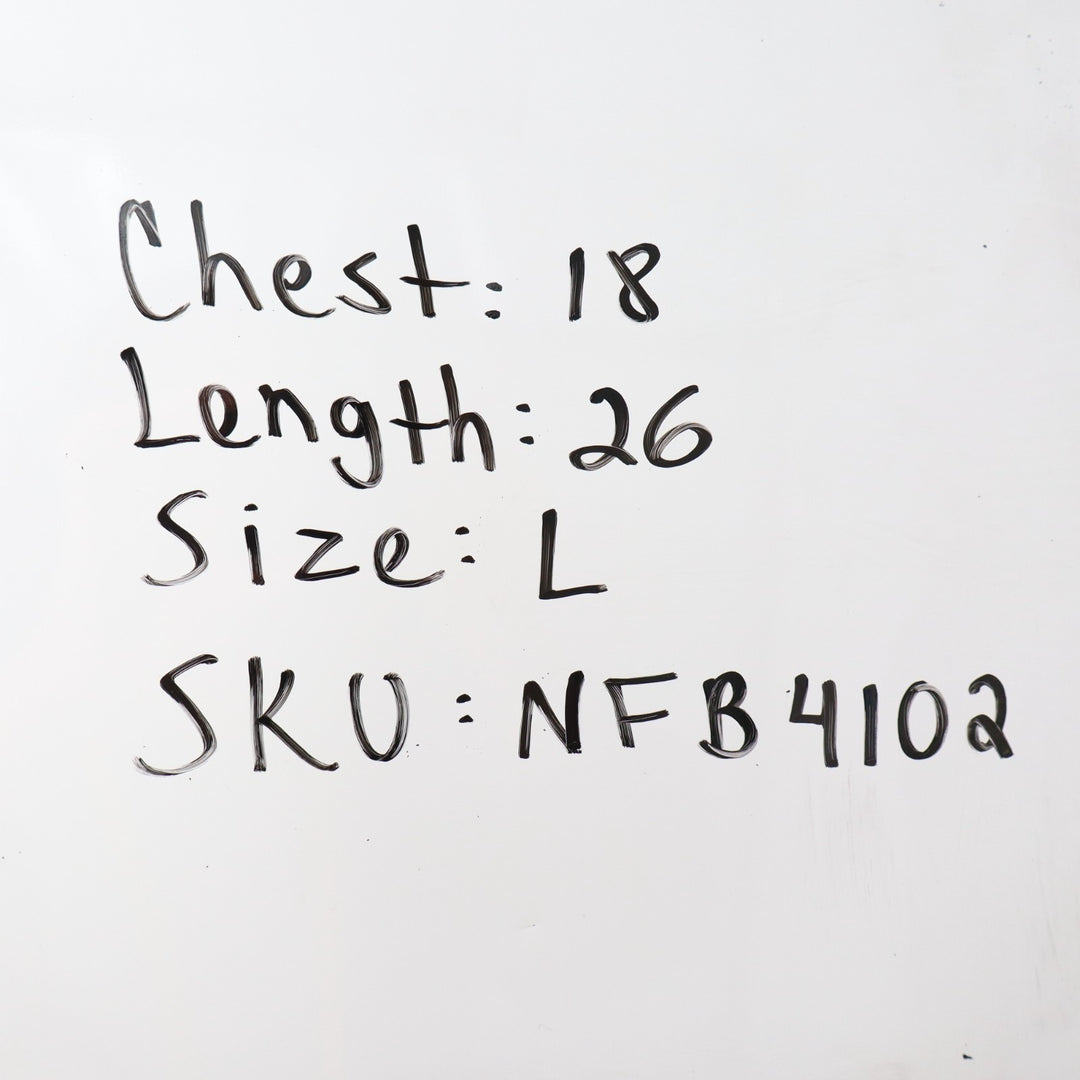 Chest: 18
Length: 26
Size: L
SKU: NFB4102